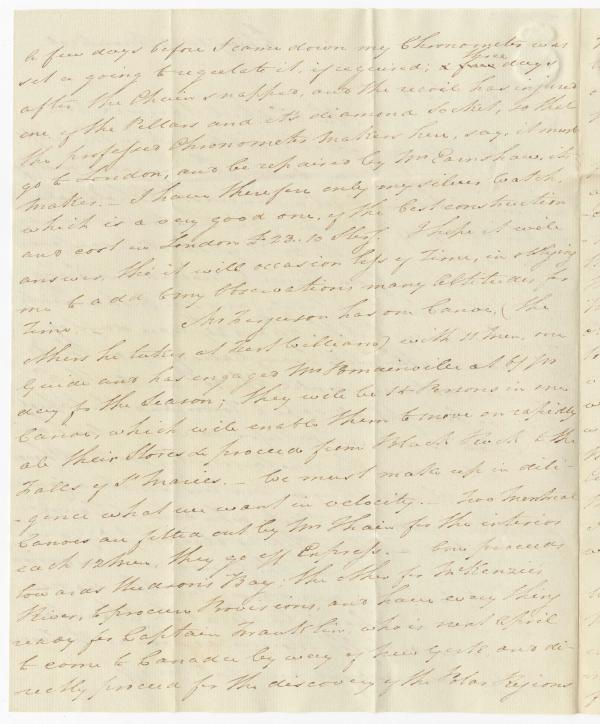 A few days before I came down my Chronometer was
set a going to regulate it, if required; & five days
after the Chain snapped, and the recoil has injured
one of the Pillars and it's diamond socket, so that
the professed Chronometer makers here, say, it must
go to London, and be repaired by Mr Earnshaw, its
maker. – I have therefore only my silver Watch,
which is a very good one, of the best construction
and cost in London £23.10 Sterg. I hope it will
answer, tho' it will occasion loss of time, in obliging
me to add to my Observations many Altitudes for
Time. – Mr Ferguson has one Canoe, (the
others he takes at Fort William) with 11 Men, one
Guide and has engaged Mr Bmainville at 6/ pr
day for the Season; they will be 14 Persons in one
Canoe, which will enable them to move on rapidly
all their Stores &c proceed from Black Rock to the
Falls of St Maries. – We must make up in dili-
-gence what we want in velocity. – Two Montreal
Canoes are fitted out by Mr Thain for the interior
each 12 Men, they go off Express. – One proceeds
towards Hudson's Bay; the other for McKenzies
River, to procure Provisions, and have every thing
ready for Captain Franklin, who is next April
to come to Canada by way of New York and di-
rectly proceed for the discovery of the Polar Regions